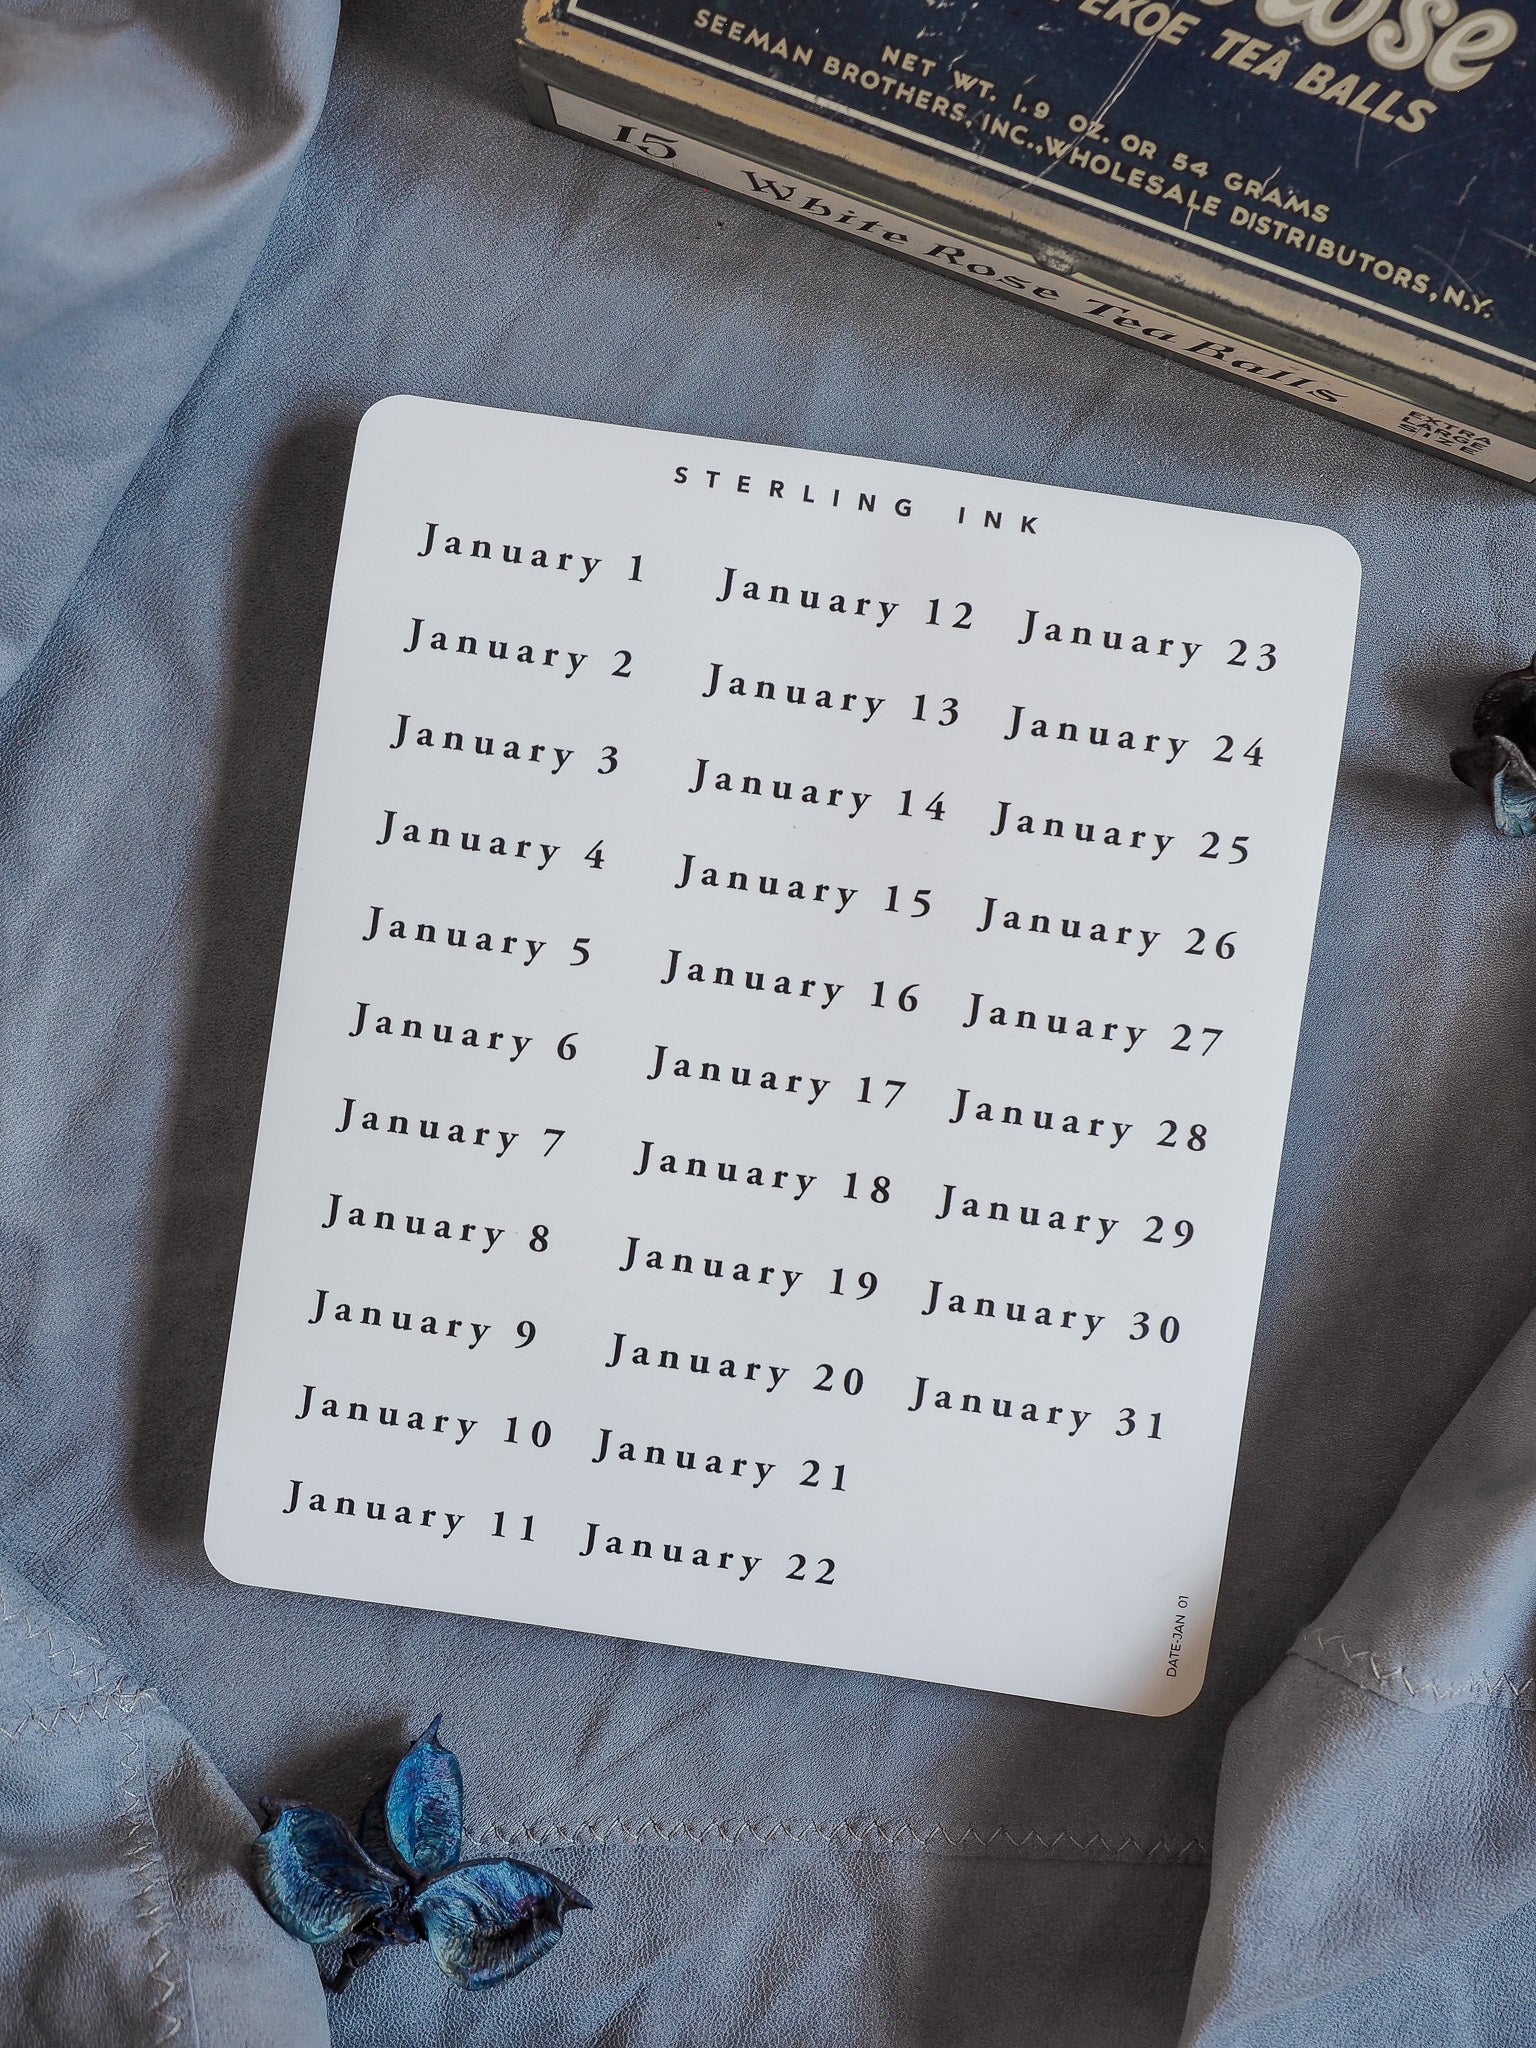 ose
PEKOE TEA BALLS
NET WT. 1.9 OZ. OR 54 GRAMS
SEEMAN BROTHERS, INC., WHOLESALE DISTRIBUTORS, N.Y.
15 White Rose Tea Balls EXTRA LARGE SIZE
STERLING INK
January 1
January 2
January 3
January 4
January 5
January 6
January 7
January 8
January 9
January 10
January 11
January 12
January 13
January 14
January 15
January 16
January 17
January 18
January 19
January 20
January 21
January 22
January 23
January 24
January 25
January 26
January 27
January 28
January 29
January 30
January 31
DATE-JAN 01